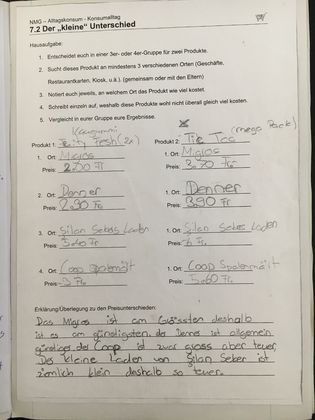 NMG – Alltagskonsum - Konsumalltag
7.2 Der „kleine" Unterschied
Hausaufgabe:
1. Entscheidet euch in einer 3er- oder 4er-Gruppe für zwei Produkte.
2. Sucht dieses Produkt an mindestens 3 verschiedenen Orten (Geschäfte,
Restaurantkarten, Kiosk, u.ä.). (gemeinsam oder mit den Eltern)
3. Notiert euch jeweils, an welchem Ort das Produkt wie viel kostet.
4. Schreibt einzeln auf, weshalb diese Produkte wohl nicht überall gleich viel kosten.
5. Vergleicht in eurer Gruppe eure Ergebnisse.
Kaugummi
Produkt 1: Fresh (2x) Produkt 2: Tic Tac (mega Pack)
1. Ort: Migros 1. Ort: Migros
Preis: Fr Preis: Fr.
2. Ort: Denner 1. Ort: Denner
Preis: 2.90 Fr. Preis: 3.90 Fr.
3. Ort: Silan Sebes Laden 1. Ort: Silan Sebes Laden
Preis: 5.40 Fr. Preis: Fr.
4. Ort: Coop 1. Ort: Coop
Preis: 3 Fr. Preis: 5.60 Fr.
Erklärung/Überlegung zu den Preisunterschieden:
Das Migros ist am Grössten deshalb
ist es am günstigsten. der Denner ist allgemein
günstiges. der Coop ist zwar gross aber teuer.
Der kleine Laden von Silan Seber ist
ziemlich klein deshalb so teuer.